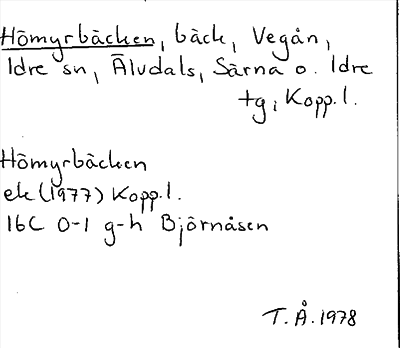 Hömyrbäcken, bäck, Vegån,
Idre sn, Älvdals, Särna o. Idre
tg, Kopp.l.
Hömyrbäcken
ek (1977) Kopp.l.
16C 0-1 g-h Björnåsen
T.Å.1978